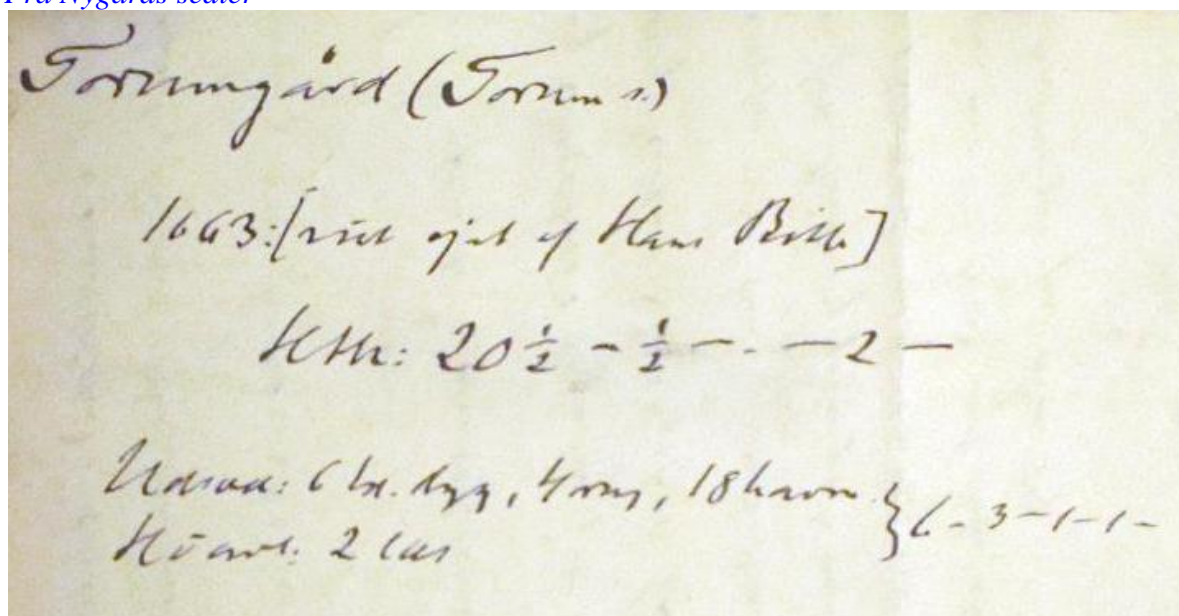 Fra Nygårds sedler
Torumgård (Torum s.)
1663: [vist ejet af Hans Bille]
Htk: 20 1/2 - 1/2 - . - 2 -
Udsæd: 6 byg, 4 rug, 18 havre } 6 - 3 - 1 - 1 -
Höavl: 2 læs